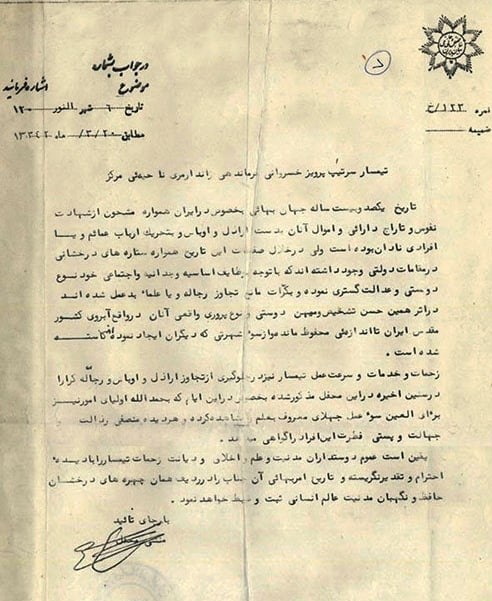 در جواب بشماره
موضوع
اشاره فرمائید
تاریخ ۶ شهر النور ۱۲۰
مطابق ۲۰/۳/ ماه ۱۳۴۲
نمره ۱۲۲/خ
ضمیمه
تیمسار سرتیپ پرویز خسروانی فرماندهی ژاندارمری ناحیهٔ مرکز
تاریخ یکصد و بیست ساله جهان بهائی بخصوص در ایران همواره مشحون از شهادت
نفوس و تاراج دارائی و اموال آنان بدست اراذل و اوباش و بتحریک ارباب عمائم و یا
افرادی نادان بوده است ولی در خلال صفحات این تاریخ همواره ستاره های درخشانی
در مقامات دولتی وجود داشته اند که با توجه بوظایف اساسیه وجدانیه و اجتماعی خود نوع
دوستی و عدالت گستری نموده و بکرّات مانع تجاوز رجاله و یا علماء بد عمل شده اند
در اثر همین حسن تشخیص و میهن دوستی و نوع پروری واقعی آنان در واقع آبروی کشور
مقدس ایران تا اندازه ئی محفوظ مانده و از سوء شهرتی که دیگران ایجاد نموده اند کاسته
شده است .
زحمات و خدمات و سرعت عمل تیمسار نیز در جلوگیری از تجاوز اراذل و اوباش و رجّاله کرارا
در سنین اخیره در این محفل مذکور شده بخصوص در این ایام که بحمد الله اولیای امور نیز
برأی العین سوء عمل جهلای معروف بعلم را مشاهده کرده و هر دیده منصفی رذالت و
جهالت و پستی فطرت این افراد را گواهی میدهد .
یقین است عموم دوستداران مدنیت و علم و اخلاق و دیانت زحمات تیمسار را با دیده
احترام و تقدیر نگریسته و تاریخ امر بهائی آن جناب را در ردیف همان چهره های درخشان
حافظ و نگهبان مدنیت عالم انسانی ثبت و ضبط خواهد نمود .
با رجای تائید